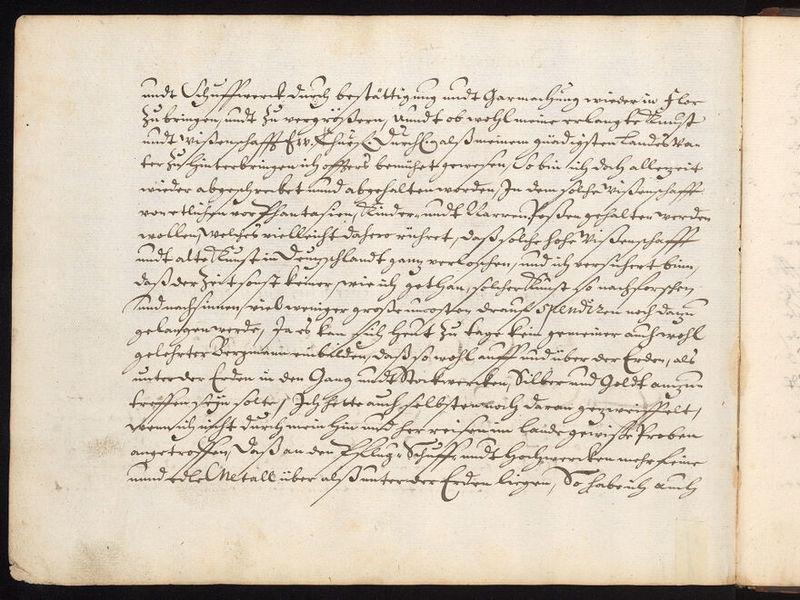 undt Schuffwerck durch bestättigung undt Garmachung wieder in Flor
zu bringen, undt zu vergrößern, Unndt ob wohl meine erlangte Kunst
undt wißenschafft Ew. Churf. Durchl. alß meinem gnädigsten Landes Va-
ter zu hinterbringen ich offters bemühet gewesen, So bin ich doch allezeit
wieder abgeschrecket unnd abgehalten worden, In dem solche wißenschafft
von etlichen vor Phantasien, Kinder- undt Narren Poßen gehalten werden
wollen, welches vielleicht dahero rühret, daß solche hohe wißenschafft
undt alte Kunst in Deutschlandt ganz verloschen, und ich versichert binn,
daß der Zeit sonst keiner, wie ich gethan, solcher Kunst so nachforschen
undt nachsinnen, viel weniger große unkosten drauf spendiren noch dazu
gelangen werde, Ja es kan sich heut zu tage kein gemeiner auch wohl
gelehrter Bergmann einbilden, daß so wohl auff und über der Erden, als
unter der Erden in den Gäng undt Stockwercken, Silber und Goldt anzu-
treffen seyn solte, Ich hette auch selbsten noch daran gezweiffelt,
wenn ich nicht durch mein hin und her reisen im lande gewiße Proben
angetroffen, daß an den Pflug- Schuff- undt Hochwercken mehr feine
unnd edle Metall über alß unter der Erden liegen, So habe ich auch